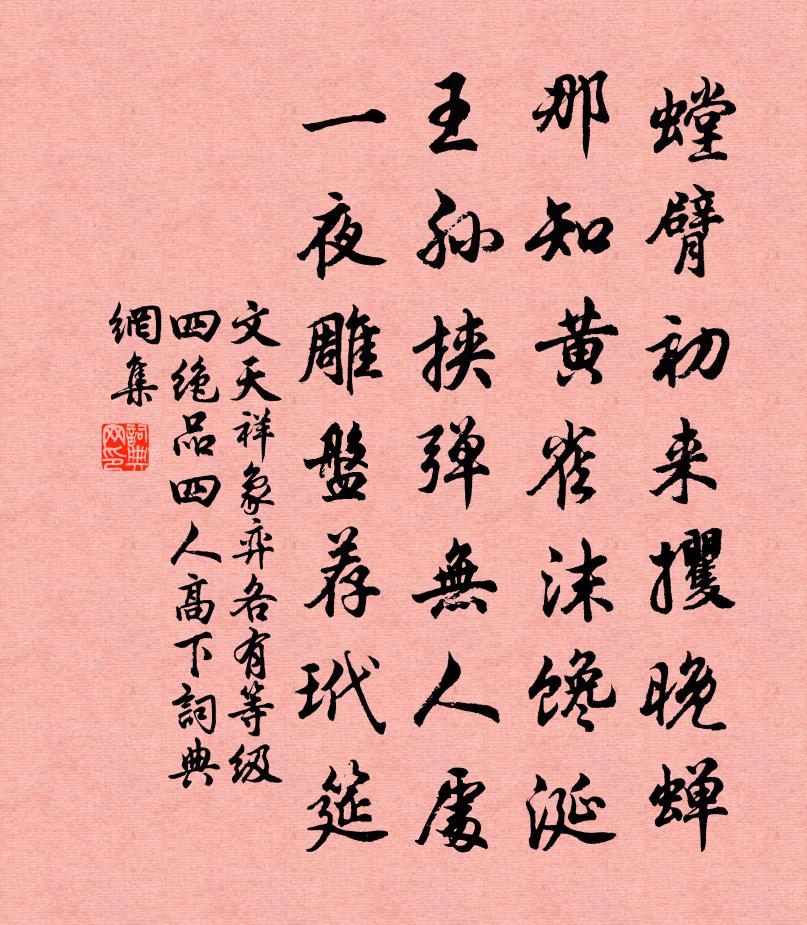 螳臂初来攫晚蝉
那知黄雀沫馋涎
王孙挟弹無人處
一夜雕盤荐玳筵
文天祥象弈各有等级
四绝品四人高下詞典
網集
詞典
网印